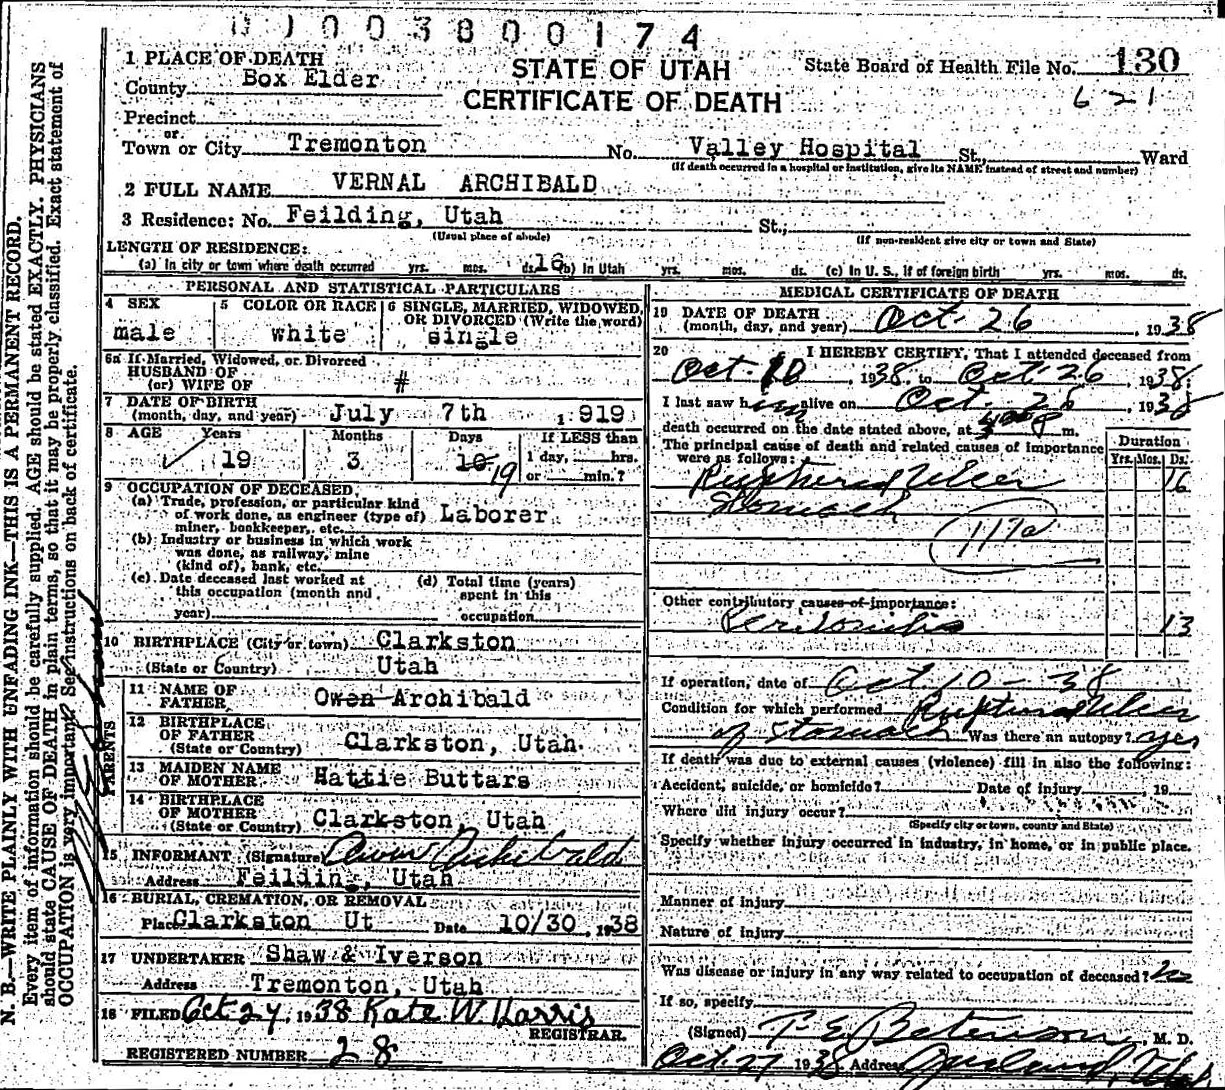 0 1 0 0 3 8 0 0 1 7 4
1 PLACE OF DEATH
County Box Elder
STATE OF UTAH
CERTIFICATE OF DEATH
State Board of Health File No. 130
621
Precinct
or
Town or City Tremonton No. Valley Hospital St., Ward
(If death occurred in a hospital or institution, give its NAME instead of street and number)
2 FULL NAME VERNAL ARCHIBALD
3 Residence: No. Feilding, Utah St.,
(Usual place of abode) (If non-resident give city or town and State)
LENGTH OF RESIDENCE:
(a) In city or town where death occurred yrs. mos. ds. 16 (b) In Utah yrs. mos. ds. (c) In U. S., if of foreign birth yrs. mos. ds.
PERSONAL AND STATISTICAL PARTICULARS
4 SEX
male
5 COLOR OR RACE
white
6 SINGLE, MARRIED, WIDOWED, OR DIVORCED (Write the word)
single
6a If Married, Widowed, or Divorced
HUSBAND OF
(or) WIFE OF #
7 DATE OF BIRTH
(month, day, and year) July 7th 1919
8 AGE Years Months Days If LESS than
19 3 10 19 1 day, hrs.
or min.?
9 OCCUPATION OF DECEASED
(a) Trade, profession, or particular kind
of work done, as engineer (type of) Laborer
miner, bookkeeper, etc.
(b) Industry or business in which work
was done, as railway, mine
(kind of), bank, etc.
(c) Date deceased last worked at (d) Total time (years)
this occupation (month and spent in this
year) occupation
10 BIRTHPLACE (City or town) Clarkston
(State or Country) Utah
PARENTS
11 NAME OF
FATHER Owen Archibald
12 BIRTHPLACE
OF FATHER
(State or Country) Clarkston, Utah.
13 MAIDEN NAME
OF MOTHER Hattie Buttars
14 BIRTHPLACE
OF MOTHER
(State or Country) Clarkston, Utah
15 INFORMANT (Signature) Owen Archibald
Address Feilding, Utah
16 BURIAL, CREMATION, OR REMOVAL
Place Clarkston Ut Date 10/30, 1938
17 UNDERTAKER Shaw & Iverson
Address Tremonton, Utah
18 FILED Oct 27, 1938 Kate W. Harris
REGISTRAR.
REGISTERED NUMBER 28
MEDICAL CERTIFICATE OF DEATH
19 DATE OF DEATH
(month, day, and year) Oct. 26, 1938
20 I HEREBY CERTIFY, That I attended deceased from
Oct. 10, 1938 to Oct 26, 1938
I last saw him alive on Oct. 26 1938
death occurred on the date stated above, at m.
The principal cause of death and related causes of importance
were as follows:
Duration
Yrs. Mos. Ds.
Ruptured Ulcer 16
Stomach
117a
Other contributory causes of importance:
Peritonitis 13
If operation, date of Oct 10 - 38
Condition for which performed Ruptured Ulcer
of Stomach Was there an autopsy? yes
If death was due to external causes (violence) fill in also the following:
Accident, suicide, or homicide? Date of injury , 19
Where did injury occur?
(Specify city or town, county and State)
Specify whether injury occurred in industry, in home, or in public place.
Manner of injury
Nature of injury
Was disease or injury in any way related to occupation of deceased? no
If so, specify
(Signed) M. D.
Oct 27 1938 Address
N. B.—WRITE PLAINLY WITH UNFADING INK—THIS IS A PERMANENT RECORD.
Every item of information should be carefully supplied. AGE should be stated EXACTLY. PHYSICIANS
should state CAUSE OF DEATH in plain terms, so that it may be properly classified. Exact statement of
OCCUPATION is very important. See instructions on back of certificate.